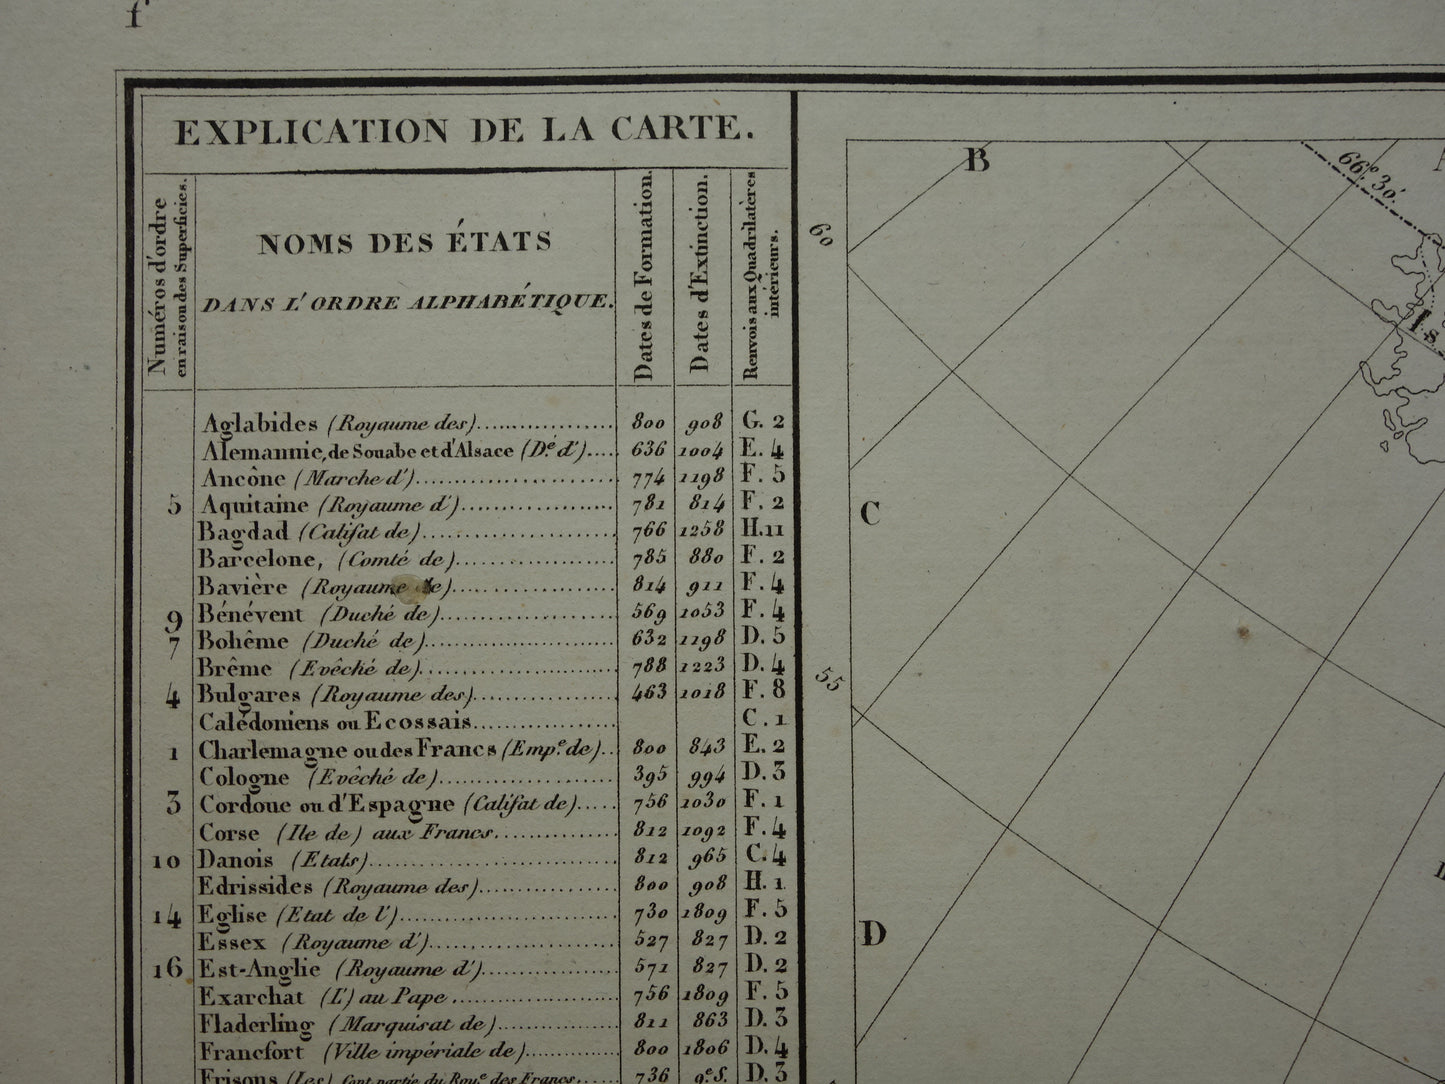 f
EXPLICATION DE LA CARTE.
Numéros d'ordre
en raison des Superficies.
NOMS DES ÉTATS
DANS L'ORDRE ALPHABÉTIQUE.
Dates de Formation.
Dates d'Extinction.
Renvois aux Quadrilatères
intérieurs.
Aglabides (Royaume des) 800 908 G. 2
Alemannie, de Souabe et d'Alsace (D.é d') 636 1004 E. 4
Ancône (Marche d') 774 1198 F. 5
5 Aquitaine (Royaume d') 781 814 F. 2
Bagdad (Califat de) 766 1258 H. 11
Barcelone, (Comté de) 785 880 F. 2
Bavière (Royaume de) 814 911 F. 4
9 Bénévent (Duché de) 569 1053 F. 4
7 Bohême (Duché de) 632 1198 D. 5
Brême (Evêché de) 788 1223 D. 4
4 Bulgares (Royaume des) 463 1018 F. 8
Calédoniens ou Ecossais C. 1
1 Charlemagne ou des Francs (Emp.e de) 800 843 E. 2
Cologne (Evêché de) 395 994 D. 3
3 Cordoue ou d'Espagne (Califat de) 756 1030 F. 1
Corse (Ile de) aux Francs 812 1092 F. 4
10 Danois (Etats) 812 965 C. 4
Edrissides (Royaume des) 800 908 H. 1
14 Eglise (Etat de l') 730 1809 F. 5
Essex (Royaume d') 527 827 D. 2
16 Est-Anglie (Royaume d') 571 827 D. 2
Exarchat (L') au Pape 756 1809 F. 5
Fladerling (Marquisat de) 811 863 D. 3
Francfort (Ville impériale de) 800 1806 D. 4
Frisons (Les) font partie du Roy.e des Francs 736 9.e S. D. 3
B
66° 30'.
60
Is.
C
55
D